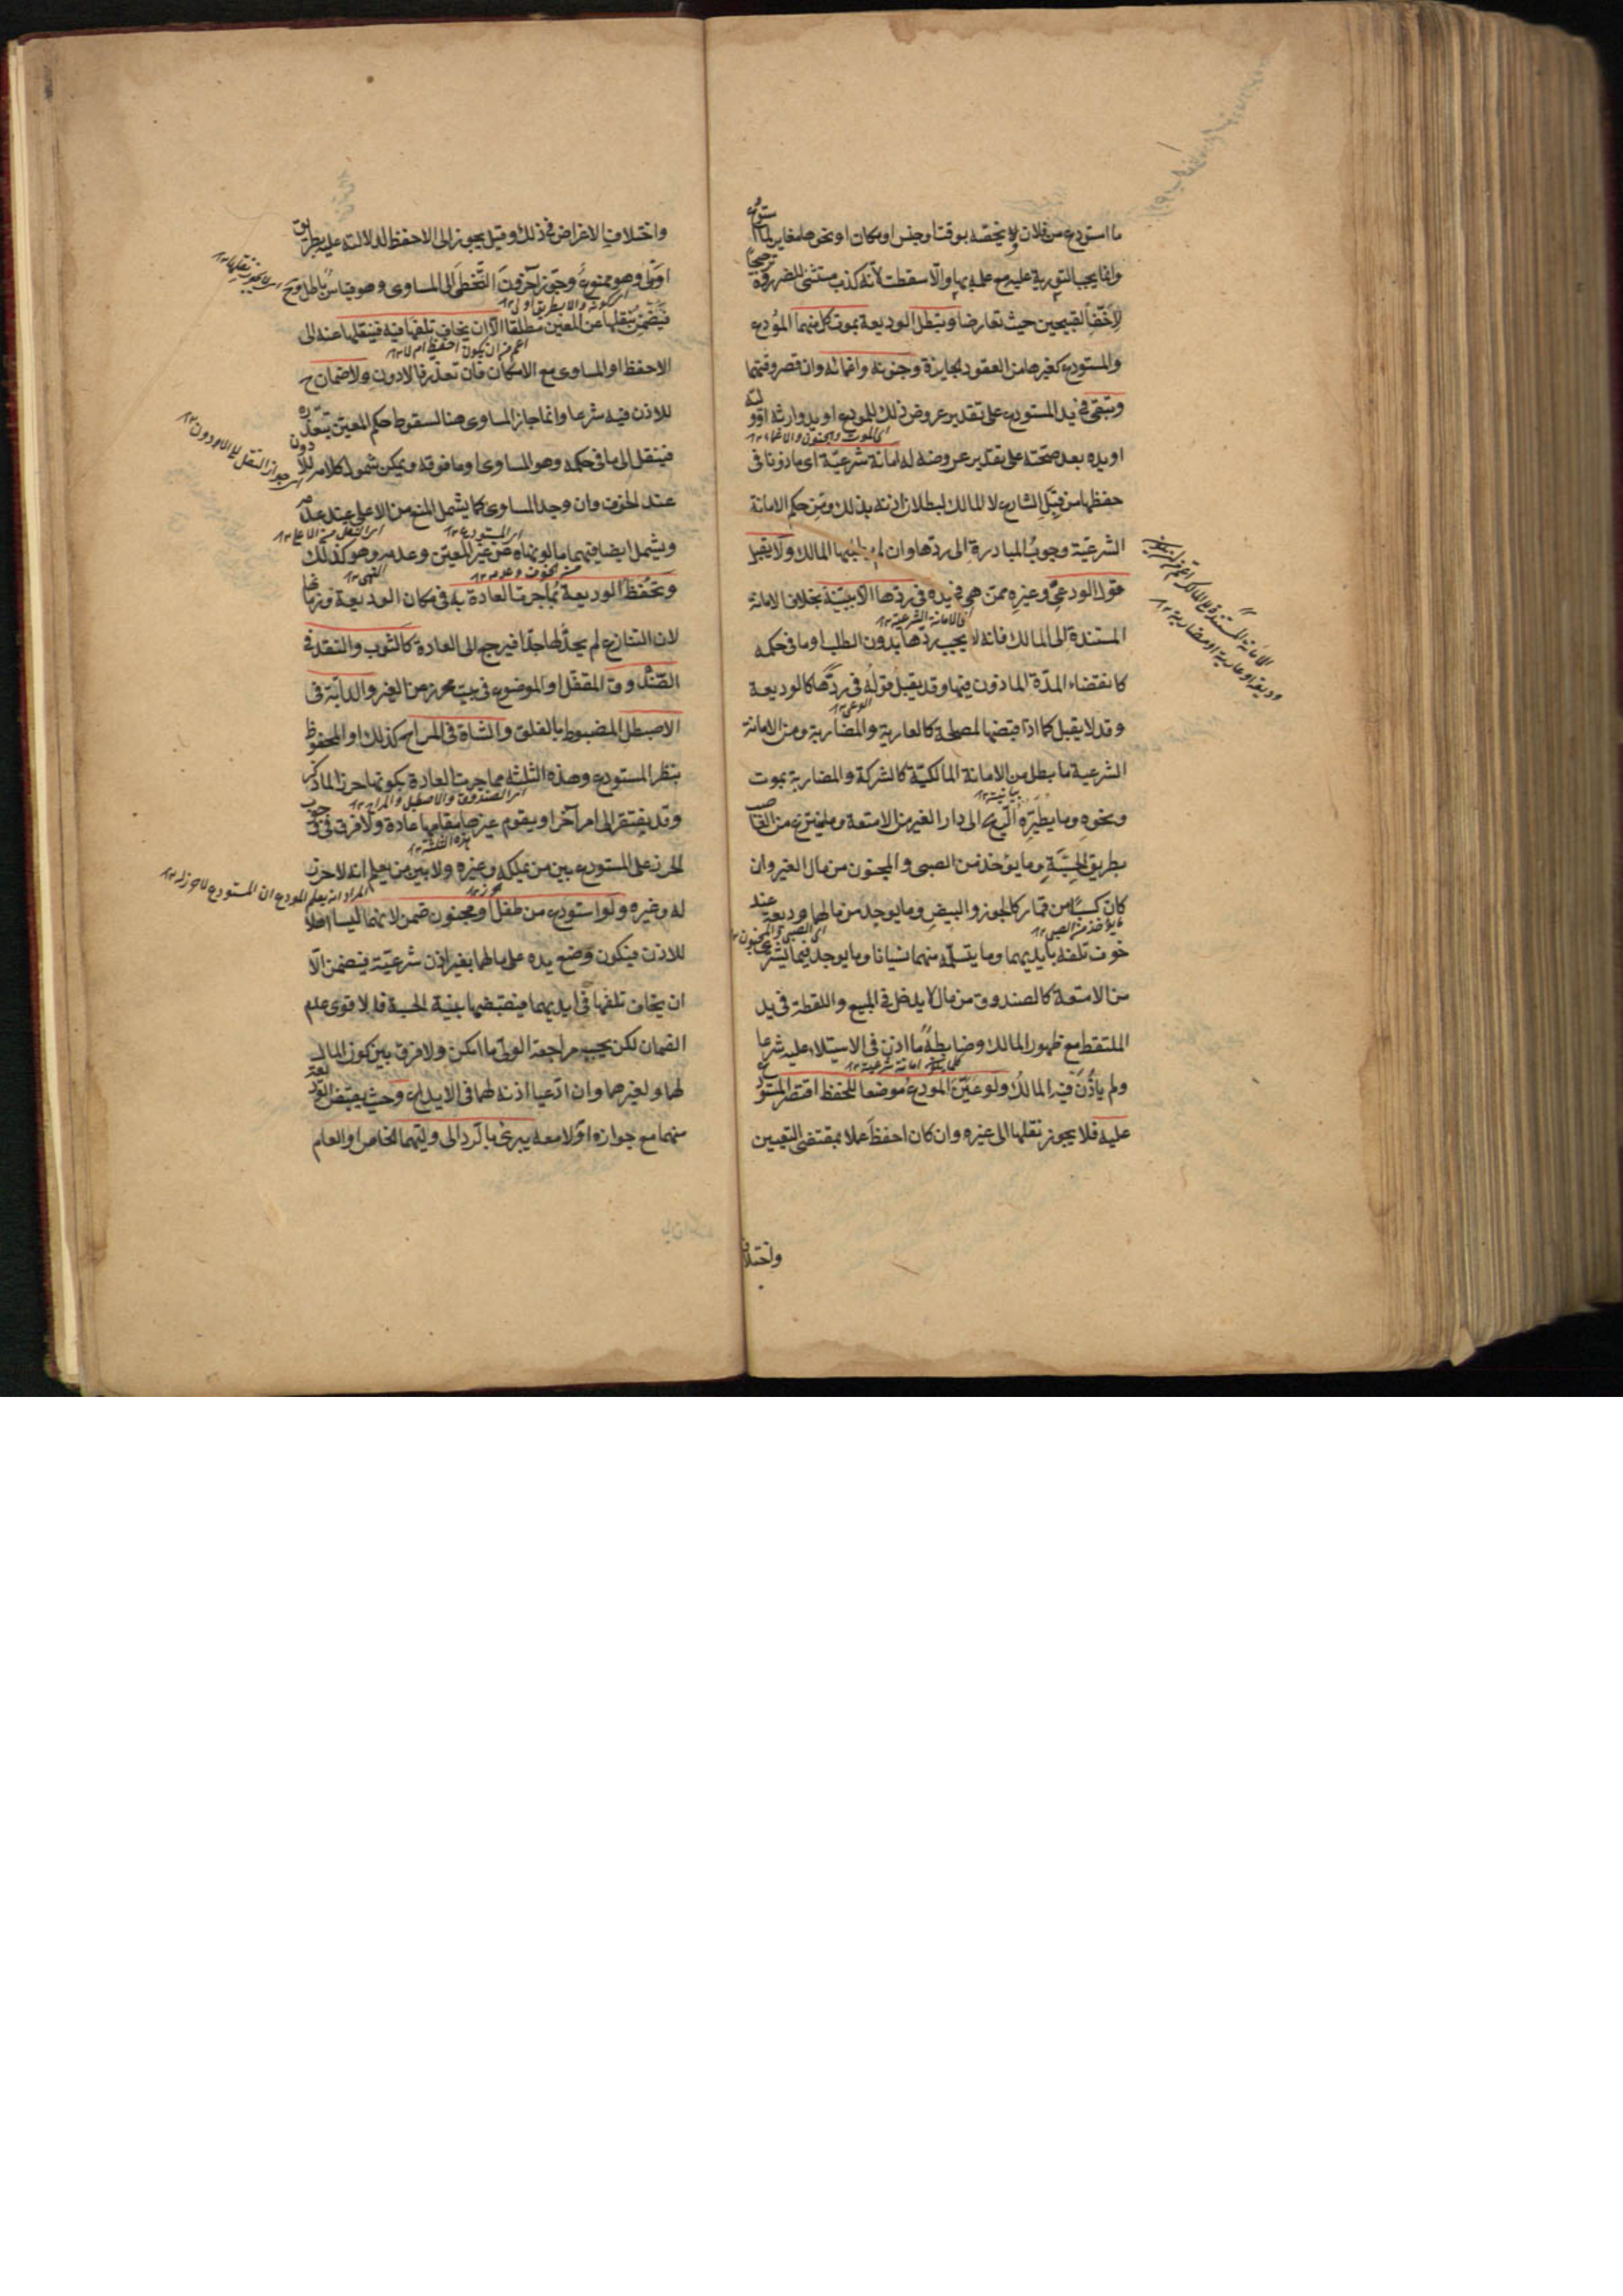 ما استودع من فلان ويخصه بوقت او جنس او مكان او نحوها مغاير لما استودع
وانما يجب التورية عليه مع علمه بها والا سقطت لانه كذب مستثنى للضرورة ترجيحا
لاخف القبيحين حيث تعارضا وتبطل الوديعة بموت كل منهما المودع
والمستودع كغيرها من العقود الجايزة وجنونه واغمائه وان قصر وقتهما
وتبقى في يد المستودع على تقدير عروض ذلك للمودع او يد وارثه او وليه
اى الموت والجنون والاغماء ١٢
او يده بعد صحته على تقدير عروضه له امانة شرعية اى ماذونا فى
حفظها من قبل الشارع لا المالك لبطلان اذنه بذلك ومن حكم الامانة
الشرعية وجوب المبادرة الى ردها وان لم يطلبها المالك ولا يقبل
قول الودعى وغيره ممن هى فى يده فى ردها الا ببينة بخلاف الامانة
اى الامانة الشرعية ١٢
المستندة الى المالك فانه لا يجب ردها بدون الطلب او ما فى حكمه
كانقضاء المدة الماذون فيها وقد يقبل قوله فى ردها كالوديعة
وقد لا يقبل كما اذا قبضها لمصلحة كالعارية والمضاربة ومن الامانة
الشرعية ما بطل من الامانة المالكية كالشركة والمضاربة بموت
ونحوه وما يطيره الريح الى دار الغير من الامتعة وما ينتزع من الغاصب
بطريق الحسبة وما يؤخذ من الصبى والمجنون من مال الغير وان
كان كسبا من قمار كالجوز والبيض وما يوجد من مالهما وديعة عند
خوف تلفه بايديهما وما يتسلمه منهما نسيانا وما يوجد فيما يشترى
من الامتعة كالصندوق من مال لا يدخل فى المبيع واللقطة فى يد
الملتقط مع ظهور المالك وضابطه ما اذن فى الاستيلاء عليه شرعا
ولم ياذن فيه المالك ولو عين المودع موضعا للحفظ اقتصر المستودع
عليه فلا يجوز نقلها الى غيره وان كان احفظ عملا بمقتضى التعيين
واختلاف
واختلاف الاغراض فى ذلك وقيل يجوز الى الاحفظ لدلالته عليه بطريق
اولى وهو ممنوع وجوز آخرون التخطى الى المساوى وهو قياس باطل وح
فيضمن بنقلها عن المعين مطلقا الا ان يخاف تلفها فيه فينقلها عنه الى
اعم من ان يكون احفظ ام لا ١٢
الاحفظ او المساوى مع الامكان فان تعذر فالادون ولا ضمان ح
للاذن فيه شرعا وانما جاز المساوى هنا لسقوط حكم المعين بتعذره
فينتقل الى ما فى حكمه وهو المساوى او ما فوقه ويمكن شمول كلامه للادون
عند الخوف وان وجد المساوى كما يشمل المنع من الاعلى عند عدمه
ويشمل ايضا فيهما ما لو نهاه عن غير المعين وعدمه وهو كذلك
وتحفظ الوديعة بما جرت العادة به فى مكان الوديعة وزمانها
لان الشارع لم يحد لها حدا فيرجع الى العادة كالثوب والنقد فى
الصندوق المقفل او الموضوع فى بيت محرز من الغير والدابة فى
الاصطبل المضبوط بالغلق والشاة فى المراح كذلك او المحفوظ
بنظر المستودع وهذه الثلثة مما جرت العادة بكونها حرزا لما ذكر
اى الصندوق والاصطبل والمراح ١٢
وقد يفتقر الى امر آخر او يقوم غيرها مقامها عادة ولا فرق فى وجوب
هذه الثلثة ١٢
الحرز على المستودع بين من يملكه وغيره ولا بين من يعلم انه لا حرز
المراد انه يعلم المودع ان المستودع لا حرز له ١٢
له وغيره ولو استودع من طفل او مجنون ضمن لانهما ليسا اهلا
للاذن فيكون وضع يده على مالهما بغير اذن شرعية فيضمن الا
ان يخاف تلفها فى ايديهما فيقبضها بنية الحسبة فالاقوى عدم
الضمان لكن يجب مراجعة الولى ما امكن ولا فرق بين كون المال
لهما ولغيرهما وان ادعيا اذنه لهما فى الايداع وحيث يقبض الوديعة
منهما مع جوازه او لا معه يبرئ بالرد الى وليهما الخاص او العام